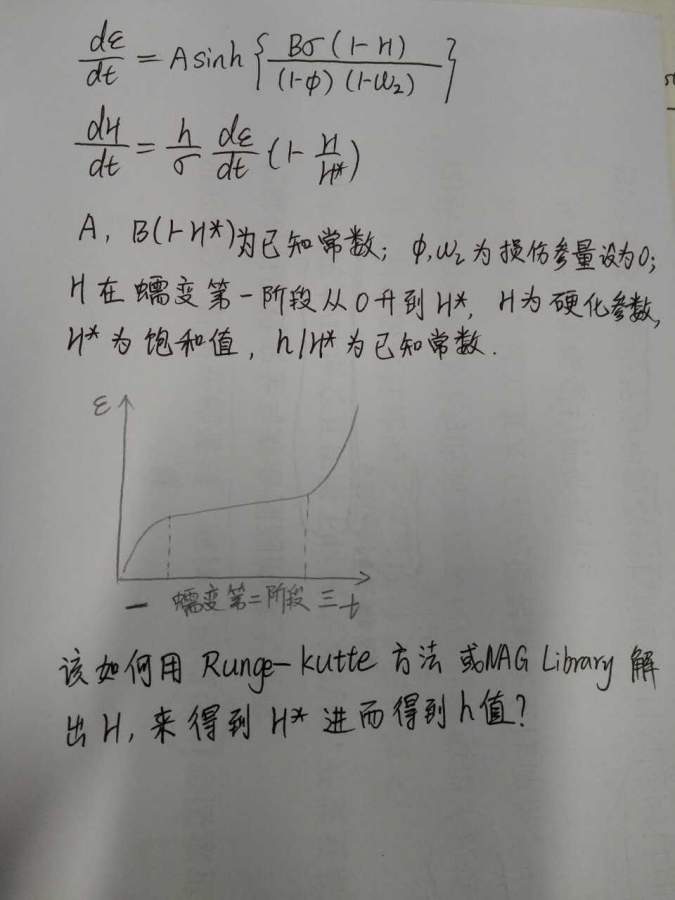 dε/dt = A sinh { Bσ(1-H) / (1-φ)(1-ω₂) }
dH/dt = h/σ dε/dt (1- H/H*)
A, B(1-H*)为已知常数; φ,ω₂为损伤参量设为0;
H在蠕变第一阶段从0升到H*, H为硬化参数,
H*为饱和值, h/H*为已知常数.
ε
一 蠕变第二阶段 三 t
该如何用 Runge-kutte 方法 或NAG Library 解
出H, 来得到 H* 进而得到h值?